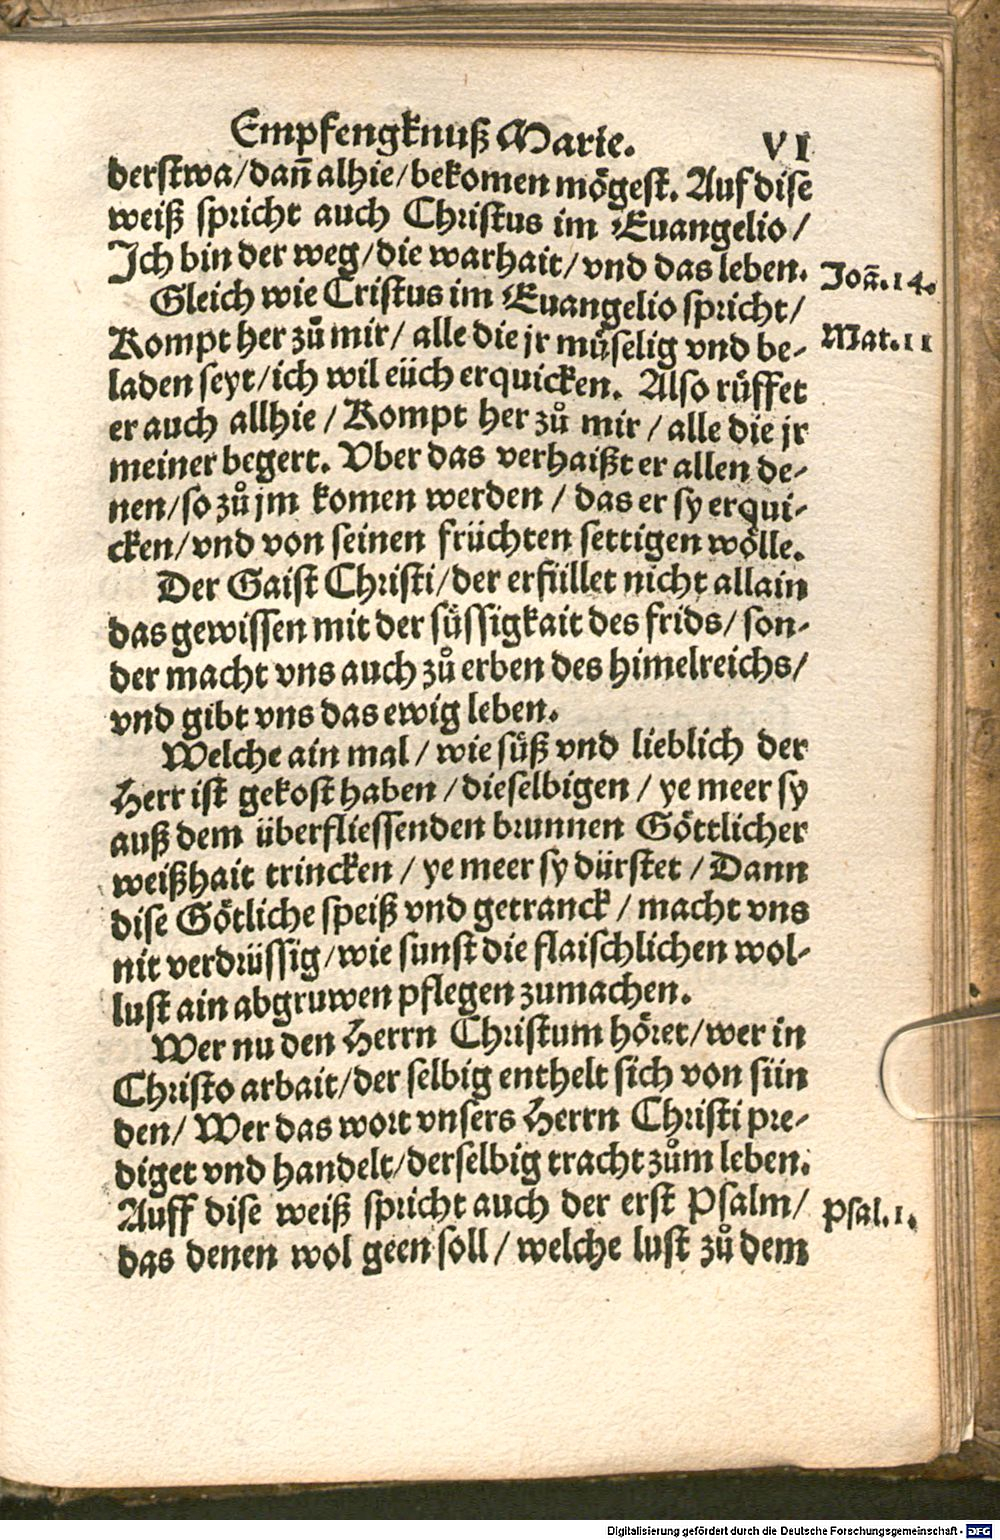 Empfengknuß Marie. VI
derstwa/dañ alhie/bekomen mögest. Auf dise
weiß spricht auch Christus im Euangelio/
Ich bin der weg/die warhait/vnd das leben. Joã.14.
Gleich wie Cristus im Euangelio spricht/
Kompt her zů mir/ alle die jr müselig vnd be- Mat.11
laden seyt/ich wil eüch erquicken. Also rüffet
er auch allhie/ Kompt her zů mir/alle die jr
meiner begert. Vber das verhaißt er allen de-
nen/so zů jm komen werden/ das er sy erqui-
cken/vnd von seinen früchten settigen wölle.
Der Gaist Christi/der erfüllet nicht allain
das gewissen mit der süssigkait des frids/ son-
der macht vns auch zů erben des himelreichs/
vnd gibt vns das ewig leben.
Welche ain mal/wie süß vnd lieblich der
Herr ist gekost haben/dieselbigen/ ye meer sy
auß dem überfliessenden brunnen Göttlicher
weißhait trincken/ye meer sy dürstet/Dann
dise Götliche speiß vnd getranck/macht vns
nit verdrüssig/wie sunst die flaischlichen wol-
lust ain abgruwen pflegen zumachen.
Wer nu den Herrn Christum höret/wer in
Christo arbait/der selbig enthelt sich von sün
den/ Wer das wort vnsers Herrn Christi pre-
diget vnd handelt/derselbig tracht zům leben.
Auff dise weiß spricht auch der erst Psalm/ Psal.1.
das denen wol geen soll/welche lust zů dem
Digitalisierung gefördert durch die Deutsche Forschungsgemeinschaft - DFG